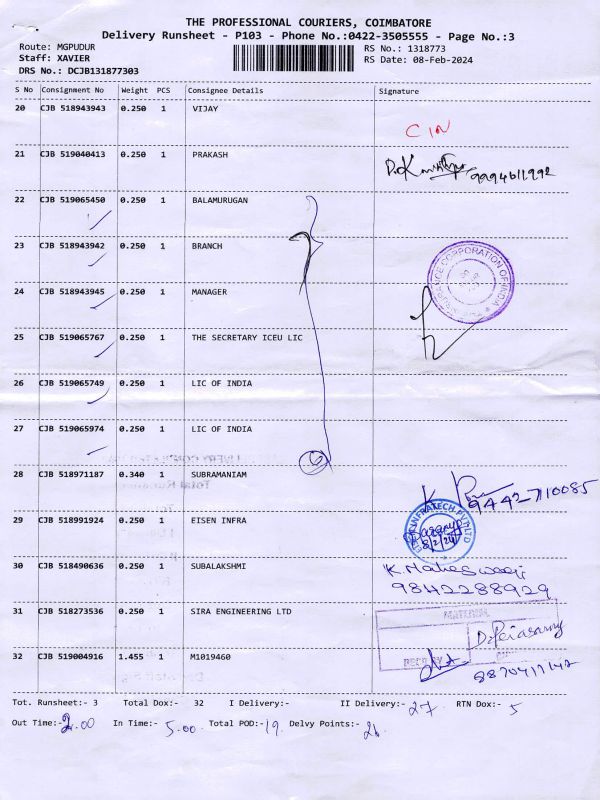 THE PROFESSIONAL COURIERS, COIMBATORE
Delivery Runsheet - P103 - Phone No.:0422-3505555 - Page No.:3
Route: MGPUDUR
RS No.: 1318773
Staff: XAVIER
RS Date: 08-Feb-2024
DRS No.: DCJB131877303
S No Consignment No Weight PCS Consignee Details Signature
20 CJB 518943943 0.250 1 VIJAY
CIN
21 CJB 519040413 0.250 1 PRAKASH
9994611992
22 CJB 519065450 0.250 1 BALAMURUGAN
23 CJB 518943942 0.250 1 BRANCH
24 CJB 518943945 0.250 1 MANAGER
INSURANCE CORPORATION OF INDIA
25 CJB 519065767 0.250 1 THE SECRETARY ICEU LIC
26 CJB 519065749 0.250 1 LIC OF INDIA
27 CJB 519065974 0.250 1 LIC OF INDIA
6
28 CJB 518971187 0.340 1 SUBRAMANIAM
9442-710085
29 CJB 518991924 0.250 1 EISEN INFRA
INFRATECH PVT LTD
8/2/24
30 CJB 518490636 0.250 1 SUBALAKSHMI
K. Maheswari
9842288929
31 CJB 518273536 0.250 1 SIRA ENGINEERING LTD
MATERIAL
32 CJB 519004916 1.455 1 M1019460
Tot. Runsheet:- 3 Total Dox:- 32 I Delivery:- II Delivery:- 27 RTN Dox:- 5
Out Time:- 2.00 In Time:- 5.00 Total POD:- 19 Delvy Points:-